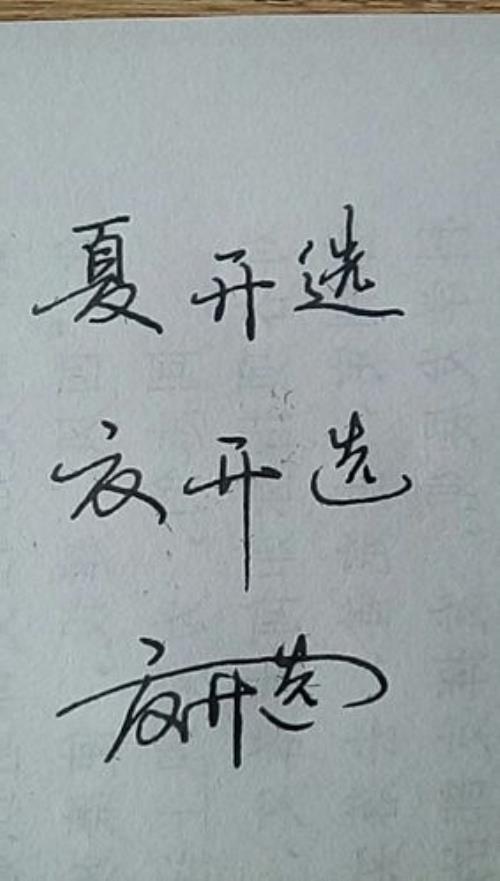 夏开选
夏开选
夏开选